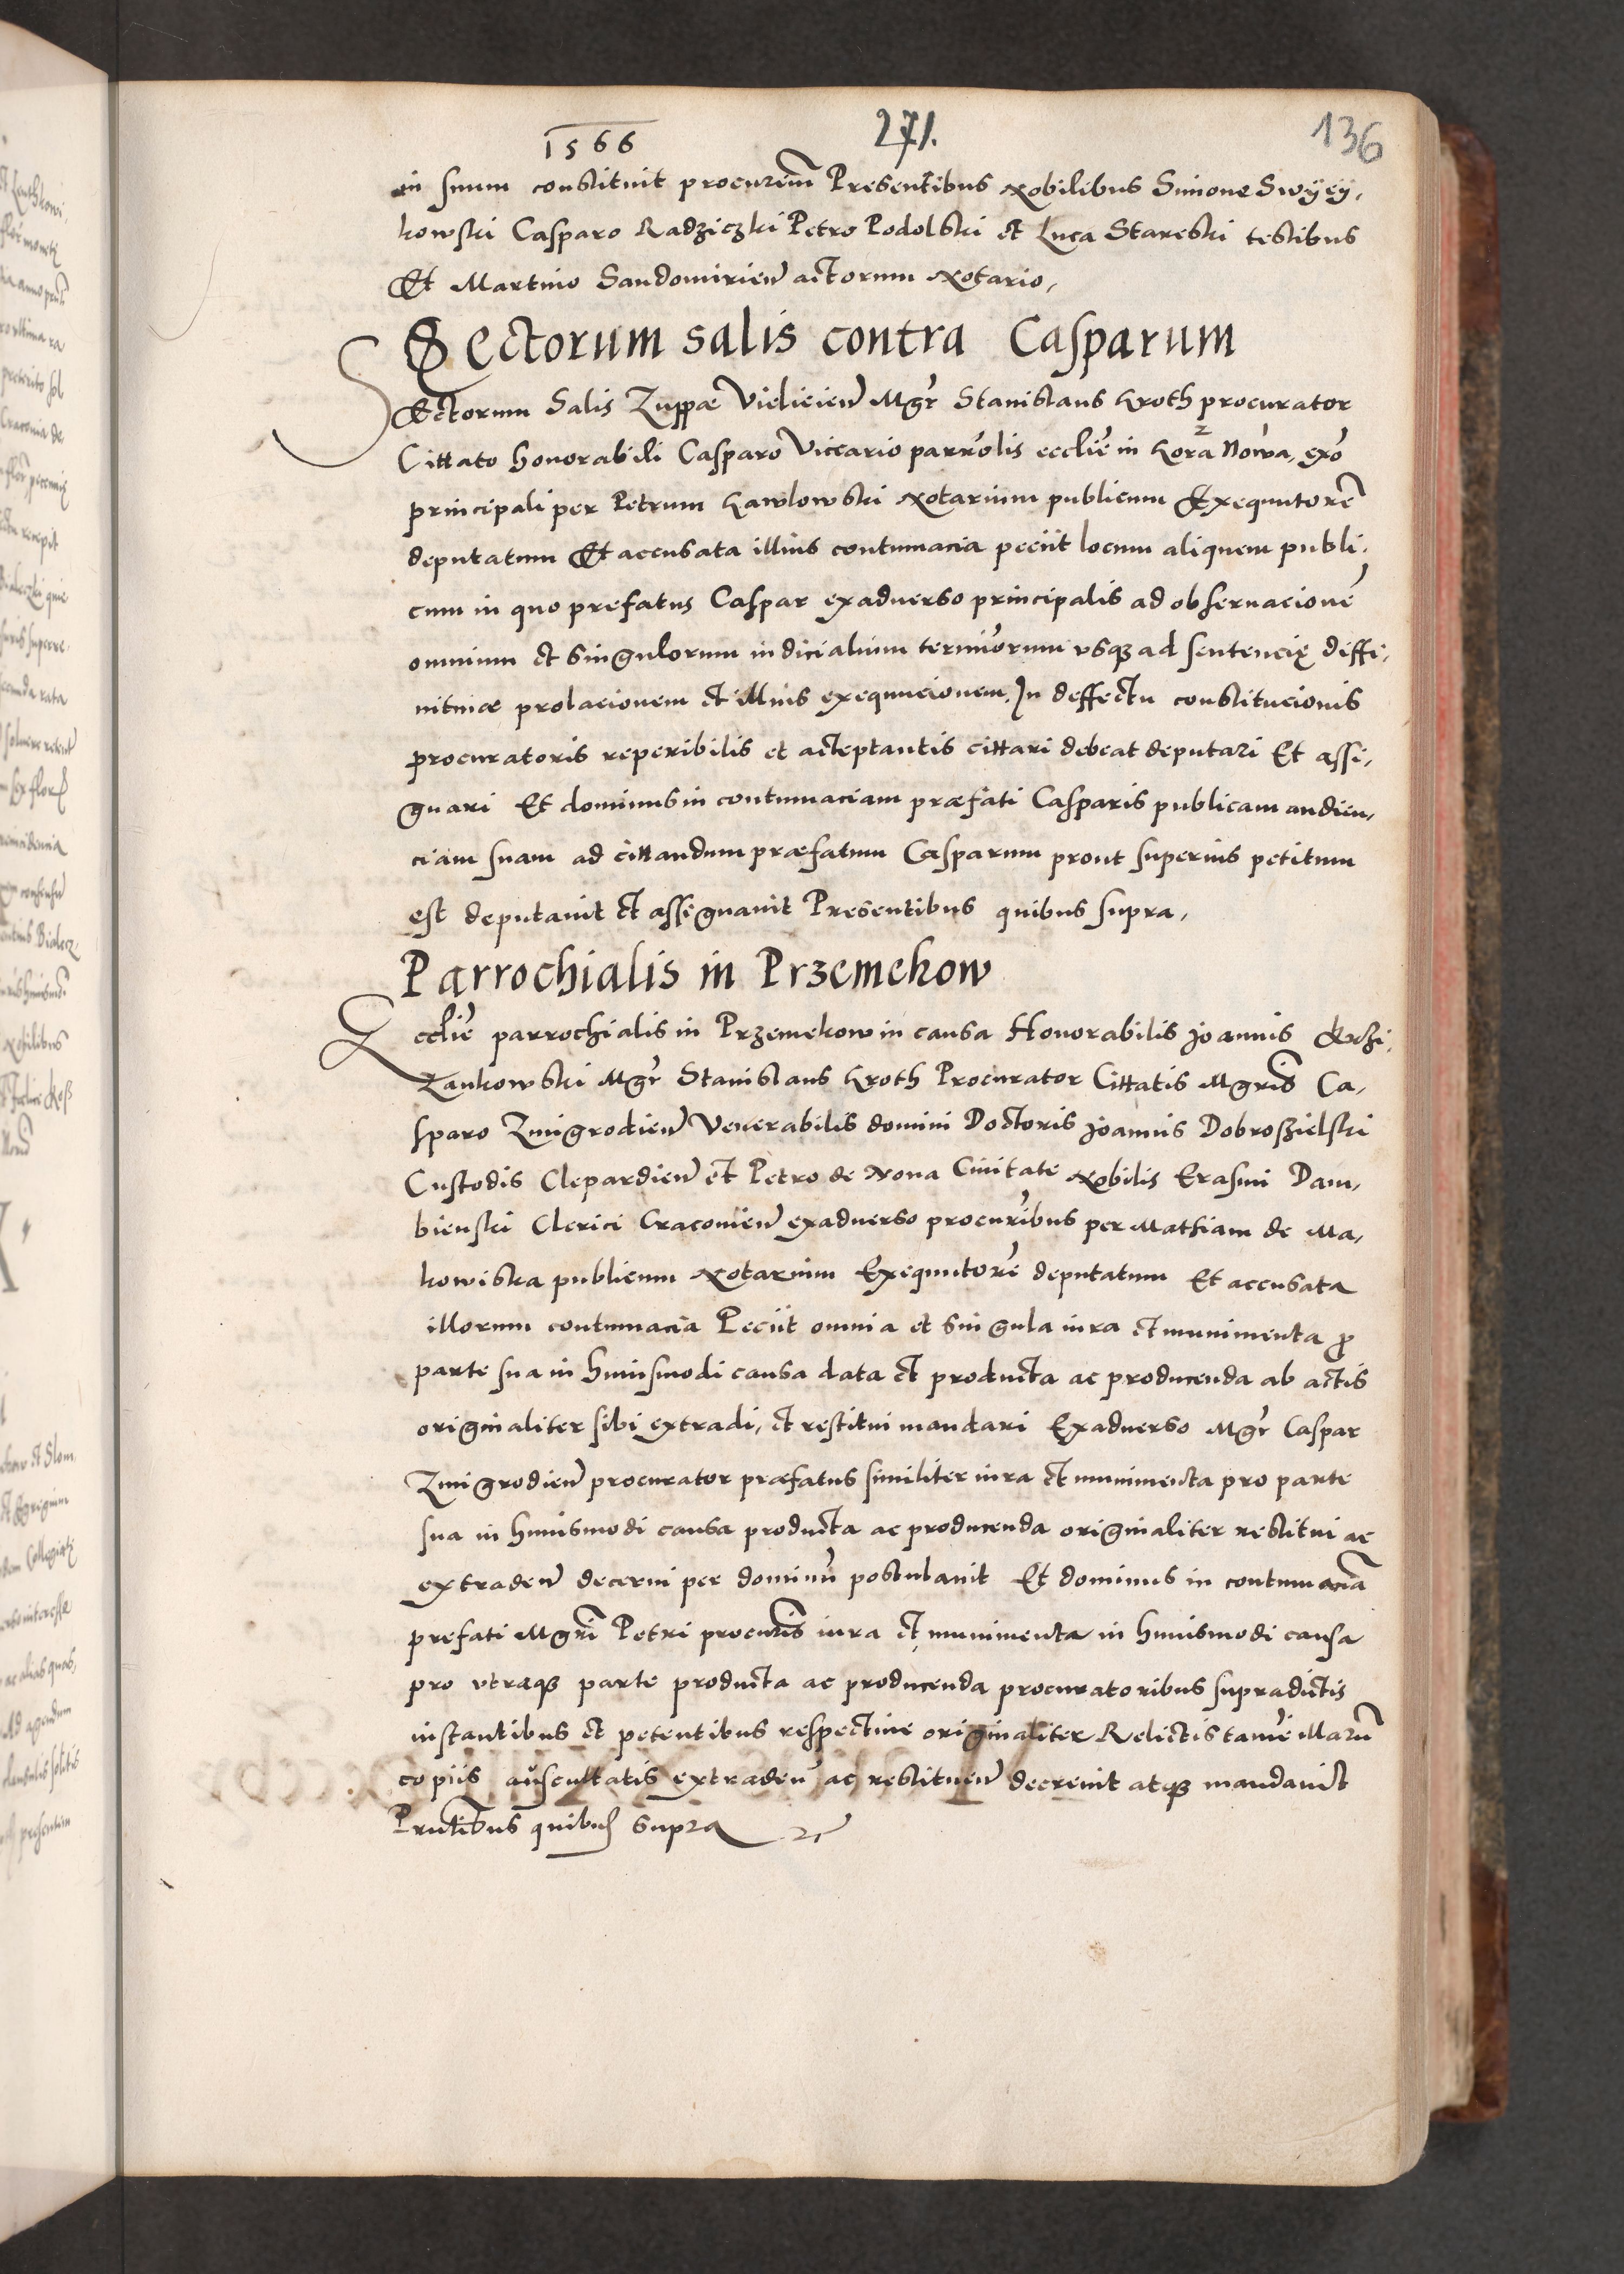 1566
271.
136
in suum constituit procurem Presentibus Nobilibus Simone Swyey,
kowski Casparo Radziczki Petro Podolski et Luca Stareski testibus
Et Martino Sandomirien actorum Notario,
Sectorum salis contra Casparum
Sectorum Salis Zuppæ Vielicien Mgr Stanislaus Kroth procurator
Cittato honorabili Casparo Viccario parrolis ecclie in Gora Nowa, exo
principali per Petrum Kawlowski Notarium publicum Exequutore
deputatum Et accusata illius contumacia peciit locum aliquem publi,
cum in quo prefatus Caspar exaduerso principalis ad obseruacione
omnium et singulorum iudicialium terminorum vsqz ad sentencię diffi,
nitiuæ prolacionem et illius exequucionem, In deffectu constitucionis
procuratoris reperibilis et acceptantis cittari debeat deputari Et assi,
gnari Et dominus in contumaciam præfati Casparis publicam audien,
ciam suam ad cittandum præfatum Casparum prout superius petitum
est deputauit et assignauit Presentibus quibus supra,
Parrochialis in Przemekow
Ecclie parrochialis in Przemekow in causa Honorabilis Joannis
Zankowski Mgr Stanislaus Kroth Procurator Cittatis Mgris Ca,
sparo Zmigrodien Venerabilis domini Doctoris Joannis Dobroszielski
Custodis Clepardien et Petro de Noua Ciuitate Nobilis Erasmi Dam,
bienski Clerici Cracouien exaduerso procuribus per Mathiam de Ma,
kowiska publicum Notarium Exequutore deputatum Et accusata
illorum contumacia Peciit omnia et singula iura et munimenta p
parte sua in huiusmodi causa data et producta ac producenda ab actis
originaliter sibi extradi, et restitui mandari Exaduerso Mgr Caspar
Zmigrodien procurator præfatus similiter iura et munimenta pro parte
sua in huiusmodi causa producta ac producenda originaliter restitui ac
extraden decerni per dominu postulauit Et dominus in contumacia
prefati Mgri Petri procuris iura et munimenta in huiusmodi causa
pro vtraqz parte producta ac producenda procuratoribus supradictis
instantibus et petentibus respectiue originaliter Relictis tame illaru
copiis auscultatis extraden ac restituen decreuit atqz mandauit
Prntibus quibus supra